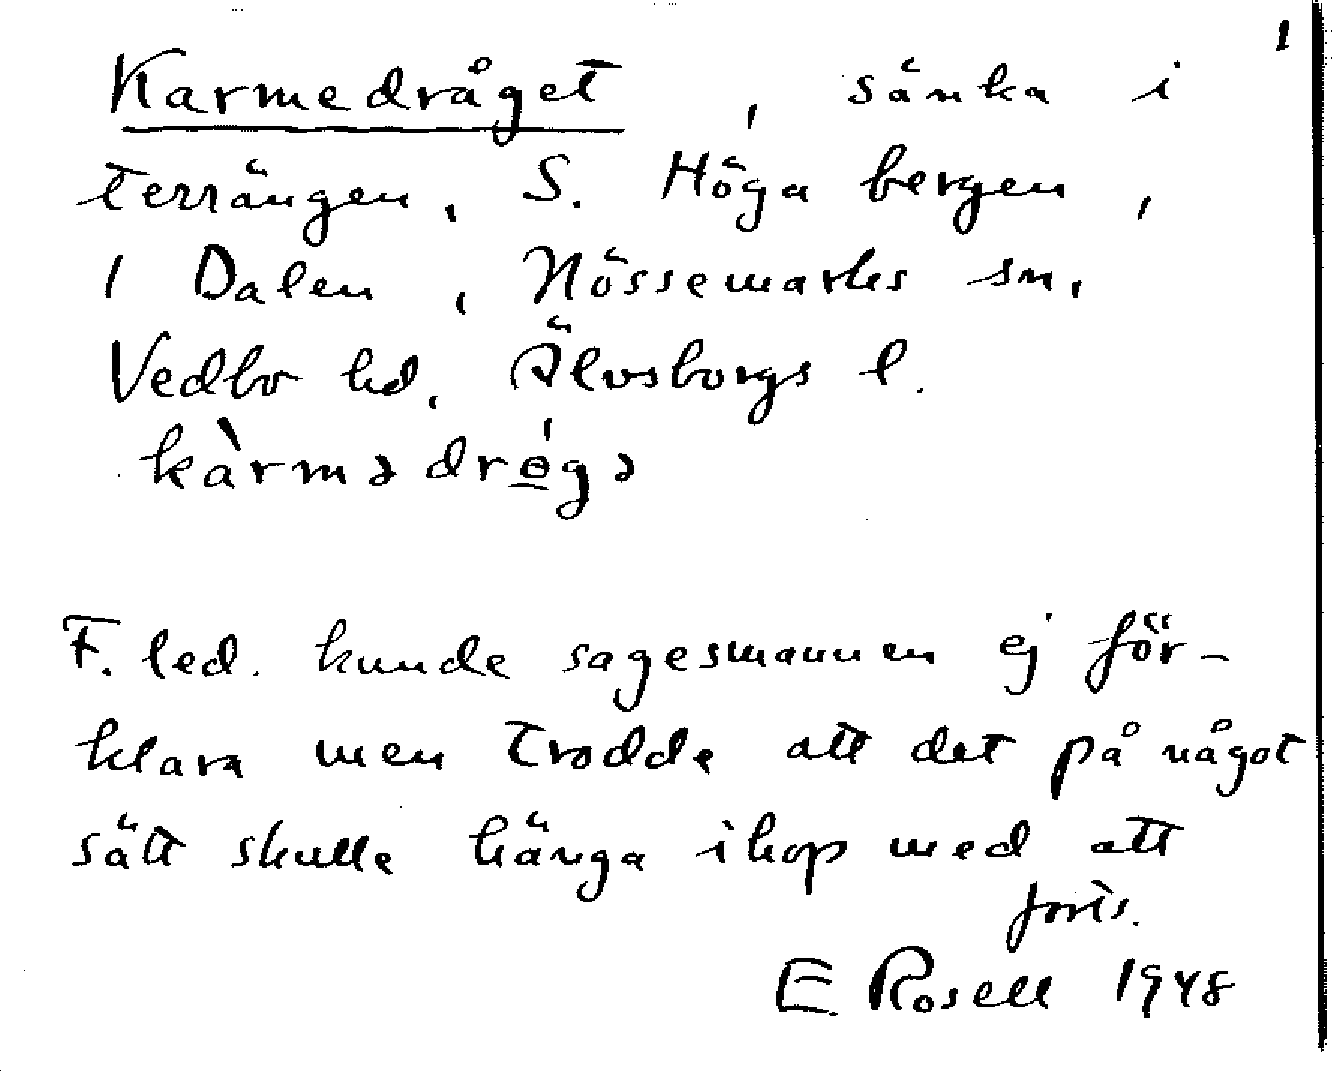 1
Karmedråget, sänka i
terrängen, S. Höga bergen,
1 Dalen, Nössemarks sn,
Vedbo hd, Älvsborgs l.
kàrmədrǫ́gə
F. led. kunde sagesmannen ej för-
klara men trodde att det på något
sätt skulle hänga ihop med att
forts.
E. Rosell 1948